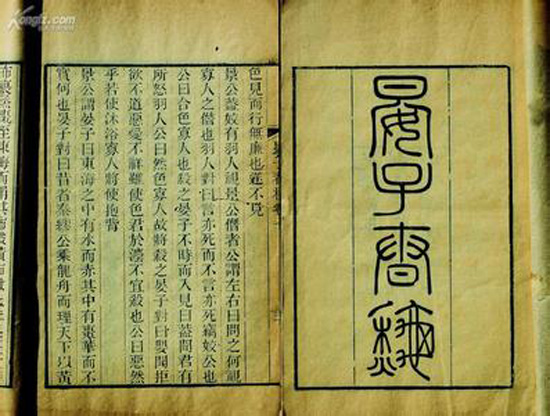 晏子春秋
色見而行無廉也遂不見
景公蓋姣有羽人視景公僭者公謂左右曰問之何視
寡人之僭也羽人對曰言亦死而不言亦死竊姣公也
公曰合色寡人也殺之晏子不時而入見曰蓋聞君有
所怒羽人公曰然色寡人故將殺之晏子對曰嬰聞拒
欲不道惡愛不祥雖使色君於法不宜殺也公曰惡然
乎若使沐浴寡人將使抱背
景公謂晏子曰東海之中有水而赤其中有棗華而不
實何也晏子對曰昔者秦繆公乘龍舟而理天下以黃
布裹烝棗至東海而捐其布
Kongfz.com